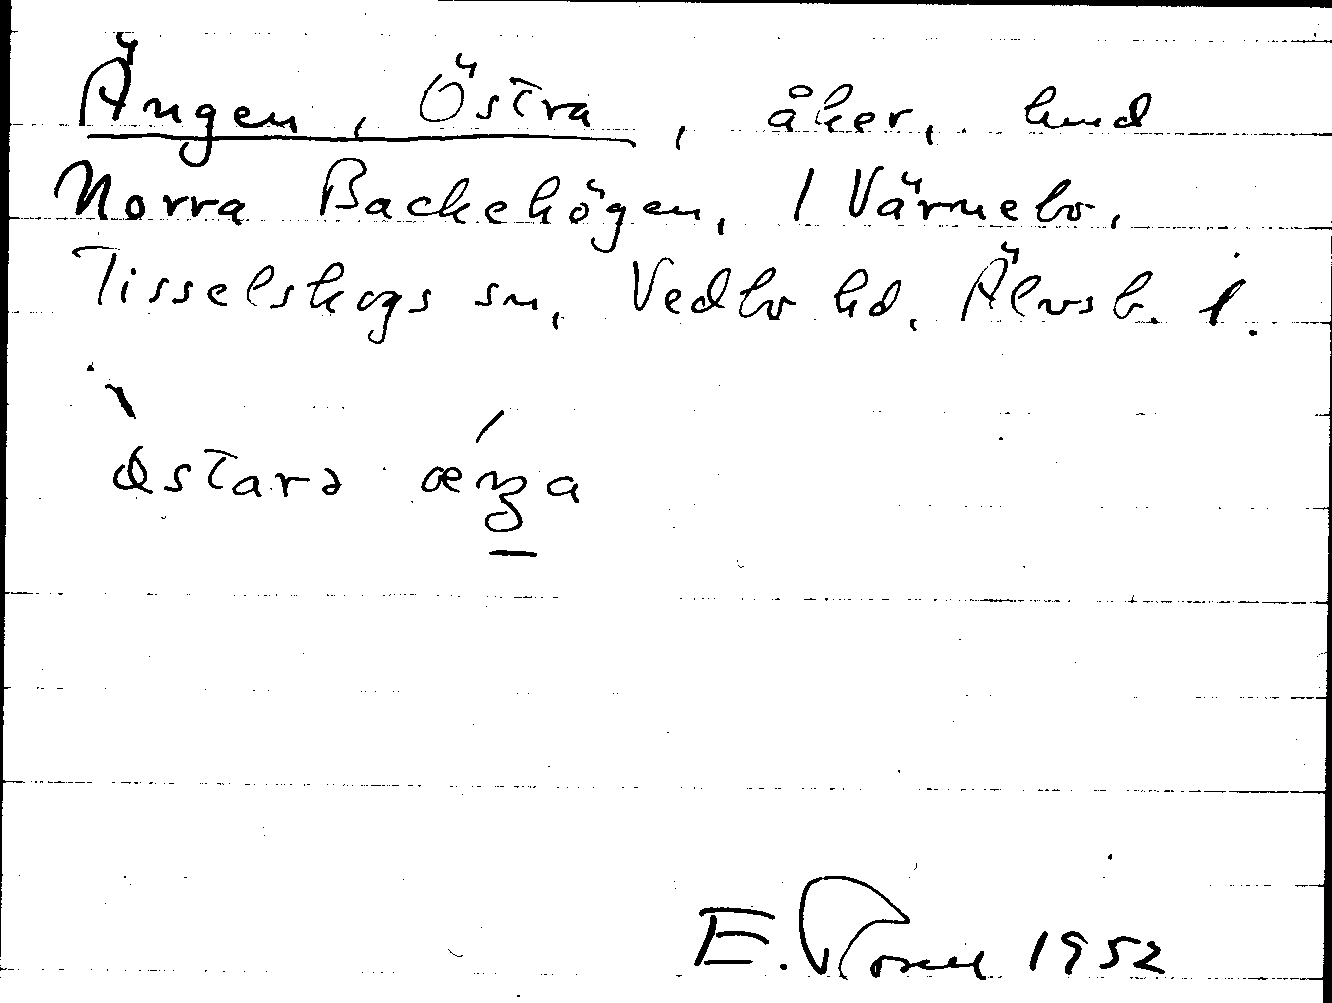 Ängen, Östra, åker, hmd
Norra Backehögen, 1 Värmebo,
Tisselskogs sn, Vedbo hd. Älvsb. l.
östarə
E. Rosell 1952